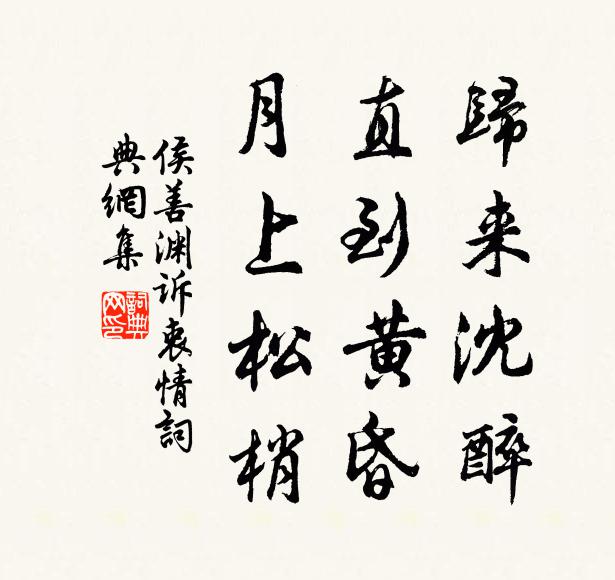 歸来沈醉
直到黄昏
月上松梢
侯善渊訴衷情詞
典網集
詞典网印